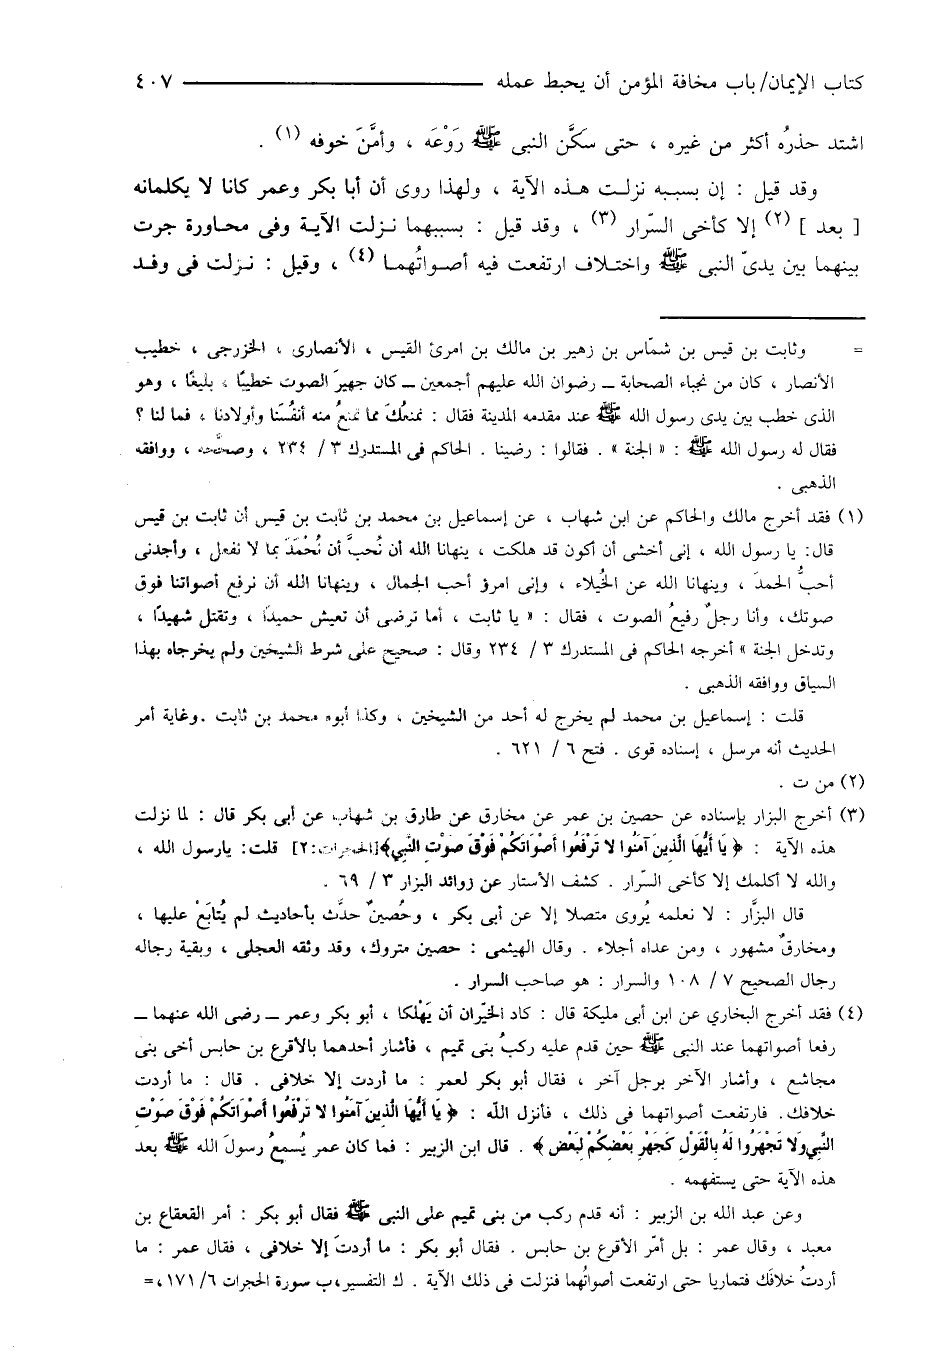 كتاب الإيمان/باب مخافة المؤمن أن يحبط عمله ٤٠٧
اشتد حذرُه أكثر من غيره ، حتى سكَّن النبى ﷺ رَوْعَه ، وأمَّنَ خوفه (١) .
وقد قيل : إن بسببه نزلت هذه الآية ، ولهذا روى أن أبا بكر وعمر كانا لا يكلمانه
[ بعد ] (٢) إلا كأخى السّرار (٣) ، وقد قيل : بسببهما نزلت الآية وفى محاورة جرت
بينهما بين يدىّ النبى ﷺ واختلاف ارتفعت فيه أصواتُهما (٤) ، وقيل : نزلت فى وفد
= وثابت بن قيس بن شمّاس بن زهير بن مالك بن امرئ القيس ، الأنصارى ، الخزرجى ، خطيب
الأنصار ، كان من نجباء الصحابة ــ رضوان الله عليهم أجمعين ــ كان جهيرَ الصوت خطيبًا ، بليغًا ، وهو
الذى خطب بين يدى رسول الله ﷺ عند مقدمه المدينة فقال : نمنعُكَ مما نمنعُ منه أنفُسَنا وأولادنا ، فما لنا ؟
فقال له رسول الله ﷺ : « الجنة » . فقالوا : رضينا . الحاكم فى المستدرك ٣ / ٢٣٤ ، وصحَّحه ، ووافقه
الذهبى .
(١) فقد أخرج مالك والحاكم عن ابن شهاب ، عن إسماعيل بن محمد بن ثابت بن قيس أن ثابت بن قيس
قال: يا رسول الله ، إنى أخشى أن أكون قد هلكت ، ينهانا الله أن نُحبَّ أن نُحْمَدَ بما لا نفعل ، وأجدنى
أحبُّ الحمدَ ، وينهانا الله عن الخُيلاء ، وإنى امرؤ أحب الجمال ، وينهانا الله أن نرفع أصواتنا فوق
صوتك، وأنا رجلٌ رفيعُ الصوت ، فقال : « يا ثابت ، أما ترضى أن تعيش حميدًا ، وتقتل شهيدًا ،
وتدخل الجنة » أخرجه الحاكم فى المستدرك ٣ / ٢٣٤ وقال : صحيح على شرط الشيخين ولم يخرجاه بهذا
السياق ووافقه الذهبى .
قلت : إسماعيل بن محمد لم يخرج له أحد من الشيخين ، وكذا أبوه محمد بن ثابت .وغاية أمر
الحديث أنه مرسل ، إسناده قوى . فتح ٦ / ٦٢١ .
(٢) من ت .
(٣) أخرج البزار بإسناده عن حصين بن عمر عن مخارق عن طارق بن شهاب عن أبى بكر قال : لما نزلت
هذه الآية : ﴿ يَا أَيُّهَا الَّذِينَ آمَنُوا لا تَرْفَعُوا أَصْوَاتَكُمْ فَوْقَ صَوْتِ النَّبِي﴾[الحجرات:٢] قلت: يارسول الله ،
والله لا أكلمك إلا كأخى السّرار . كشف الأستار عن زوائد البزار ٣ / ٦٩ .
قال البزَّار : لا نعلمه يُروى متصلا إلا عن أبى بكر ، وحُصينٌ حدَّث بأحاديث لم يُتابَعْ عليها ،
ومخارقٌ مشهور ، ومن عداه أجلاء . وقال الهيثمى : حصين متروك، وقد وثقه العجلى ، وبقية رجاله
رجال الصحيح ٧ / ١٠٨ والسرار : هو صاحب السرار .
(٤) فقد أخرج البخاري عن ابن أبى مليكة قال : كاد الخيّران أن يَهْلكا ، أبو بكر وعمر ــ رضى الله عنهما ــ
رفعا أصواتهما عند النبى ﷺ حين قدم عليه ركبُ بنى تميم ، فأشار أحدهما بالأقرع بن حابس أخى بنى
مجاشع ، وأشار الآخر برجل آخر ، فقال أبو بكر لعمر : ما أردت إلا خلافى . قال : ما أردت
خلافك. فارتفعت أصواتهما فى ذلك ، فأنزل الله : ﴿ يَا أَيُّهَا الَّذِينَ آمَنُوا لا تَرْفَعُوا أَصْوَاتَكُمْ فَوْقَ صَوْتِ
النَّبِي وَلا تَجْهَرُوا لَهُ بِالْقَوْلِ كَجَهْرِ بَعْضِكُمْ لِبَعْض ﴾ . قال ابن الزبير : فما كان عمر يُسمعُ رسولَ الله ﷺ بعد
هذه الآية حتى يستفهمه .
وعن عبد الله بن الزبير : أنه قدم ركب من بنى تميم على النبى ﷺ فقال أبو بكر : أمر القعقاع بن
معبد ، وقال عمر : بل أمّر الأقرع بن حابس . فقال أبو بكر : ما أردتَ إلا خلافى ، فقال عمر : ما
أردتُ خلافَك فتماريا حتى ارتفعت أصواتُهما فنزلت فى ذلك الآية . ك التفسير،ب سورة الحجرات ٦/ ١٧١ ،=